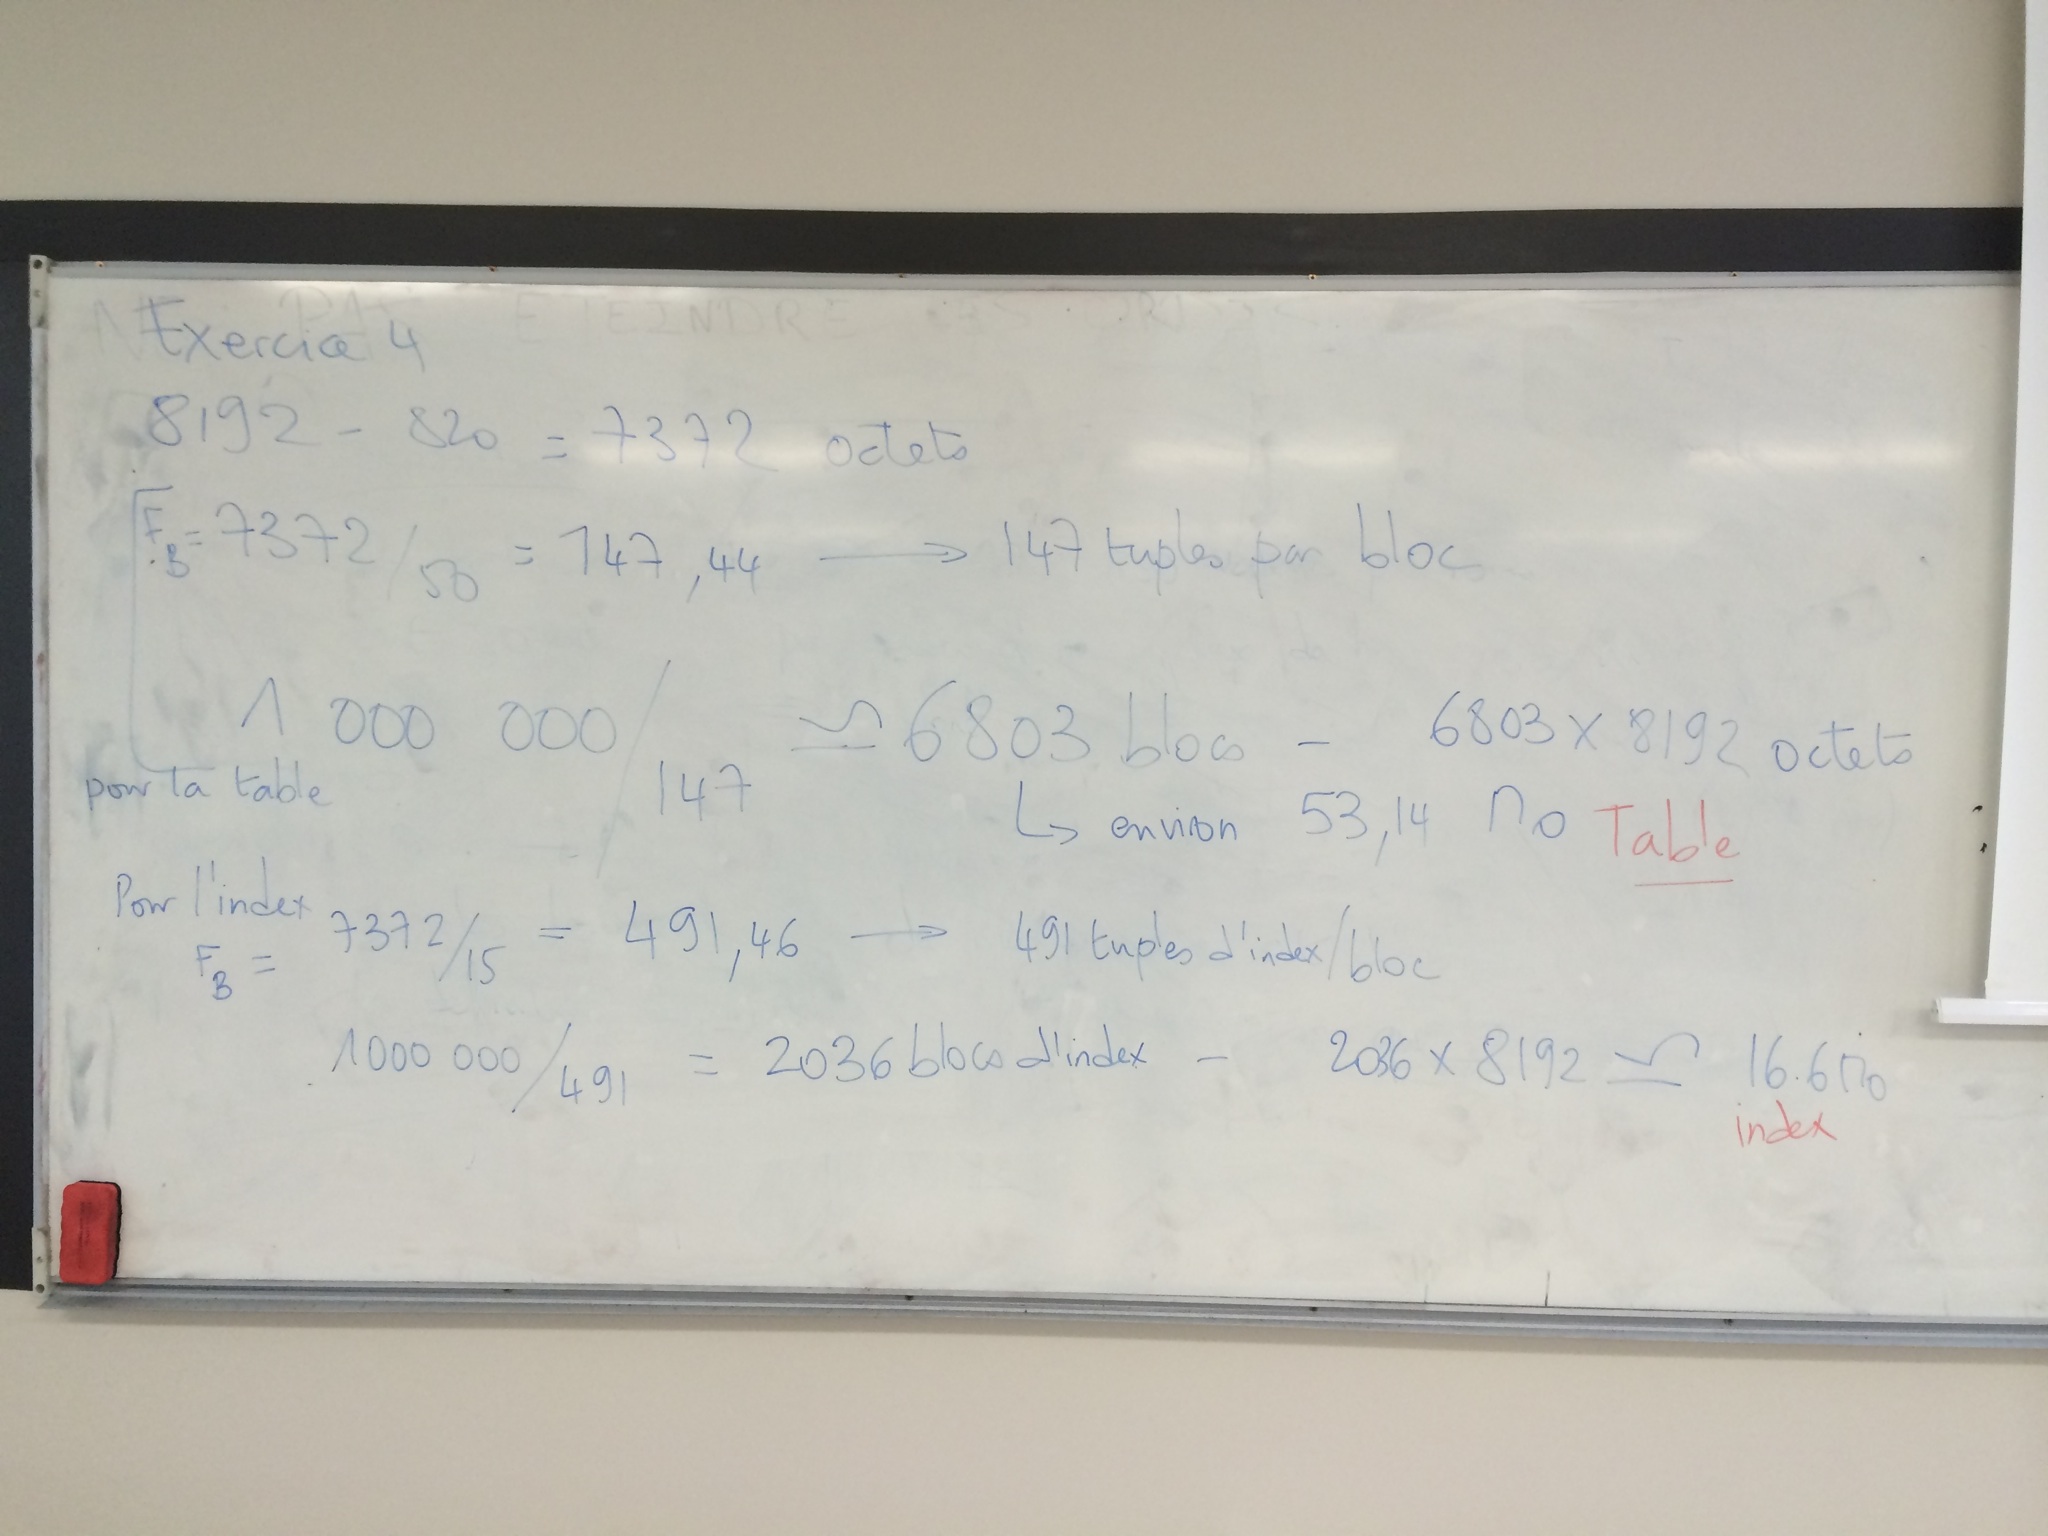 Exercice 4
8192 - 820 = 7372 octets
FB = 7372/50 = 147,44 → 147 tuples par bloc
1 000 000/147 ≃ 6803 blocs - 6803 x 8192 octets
pour la table
↳ environ 53,14 Mo Table
Pour l'index
FB = 7372/15 = 491,46 → 491 tuples d'index/bloc
1000 000/491 = 2036 blocs d'index - 2036 x 8192 ≃ 16.6 Mo
index